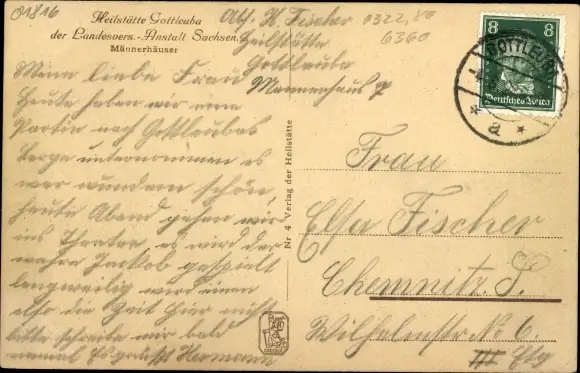 01816
Heilstätte Gottleuba
der Landesvers.-Anstalt Sachsen.
Männerhäuser
Abs. H. Fischer
Heilstätte
Gottleuba
Männerhaus 7
0322,80
6360
8 8
Deutsches Reich
GOTTLEUBA
* a *
Meine liebe Frau
Heute haben wir eine
Partie nach Gottleubas
Berge unternommen es
war wundern schön,
heute Abend gehen wir
ins Theater, es wird der
wahre Jackob gespielt
langweilig wird einen
also die Zeit hier nicht
bitte schreibe mir bald
einmal Es grüsst Hermann
Nr 4 Verlag der Heilstätte
Frau
Elsa Fischer
Chemnitz S.
Wilhelmstr No 6.
III Etg